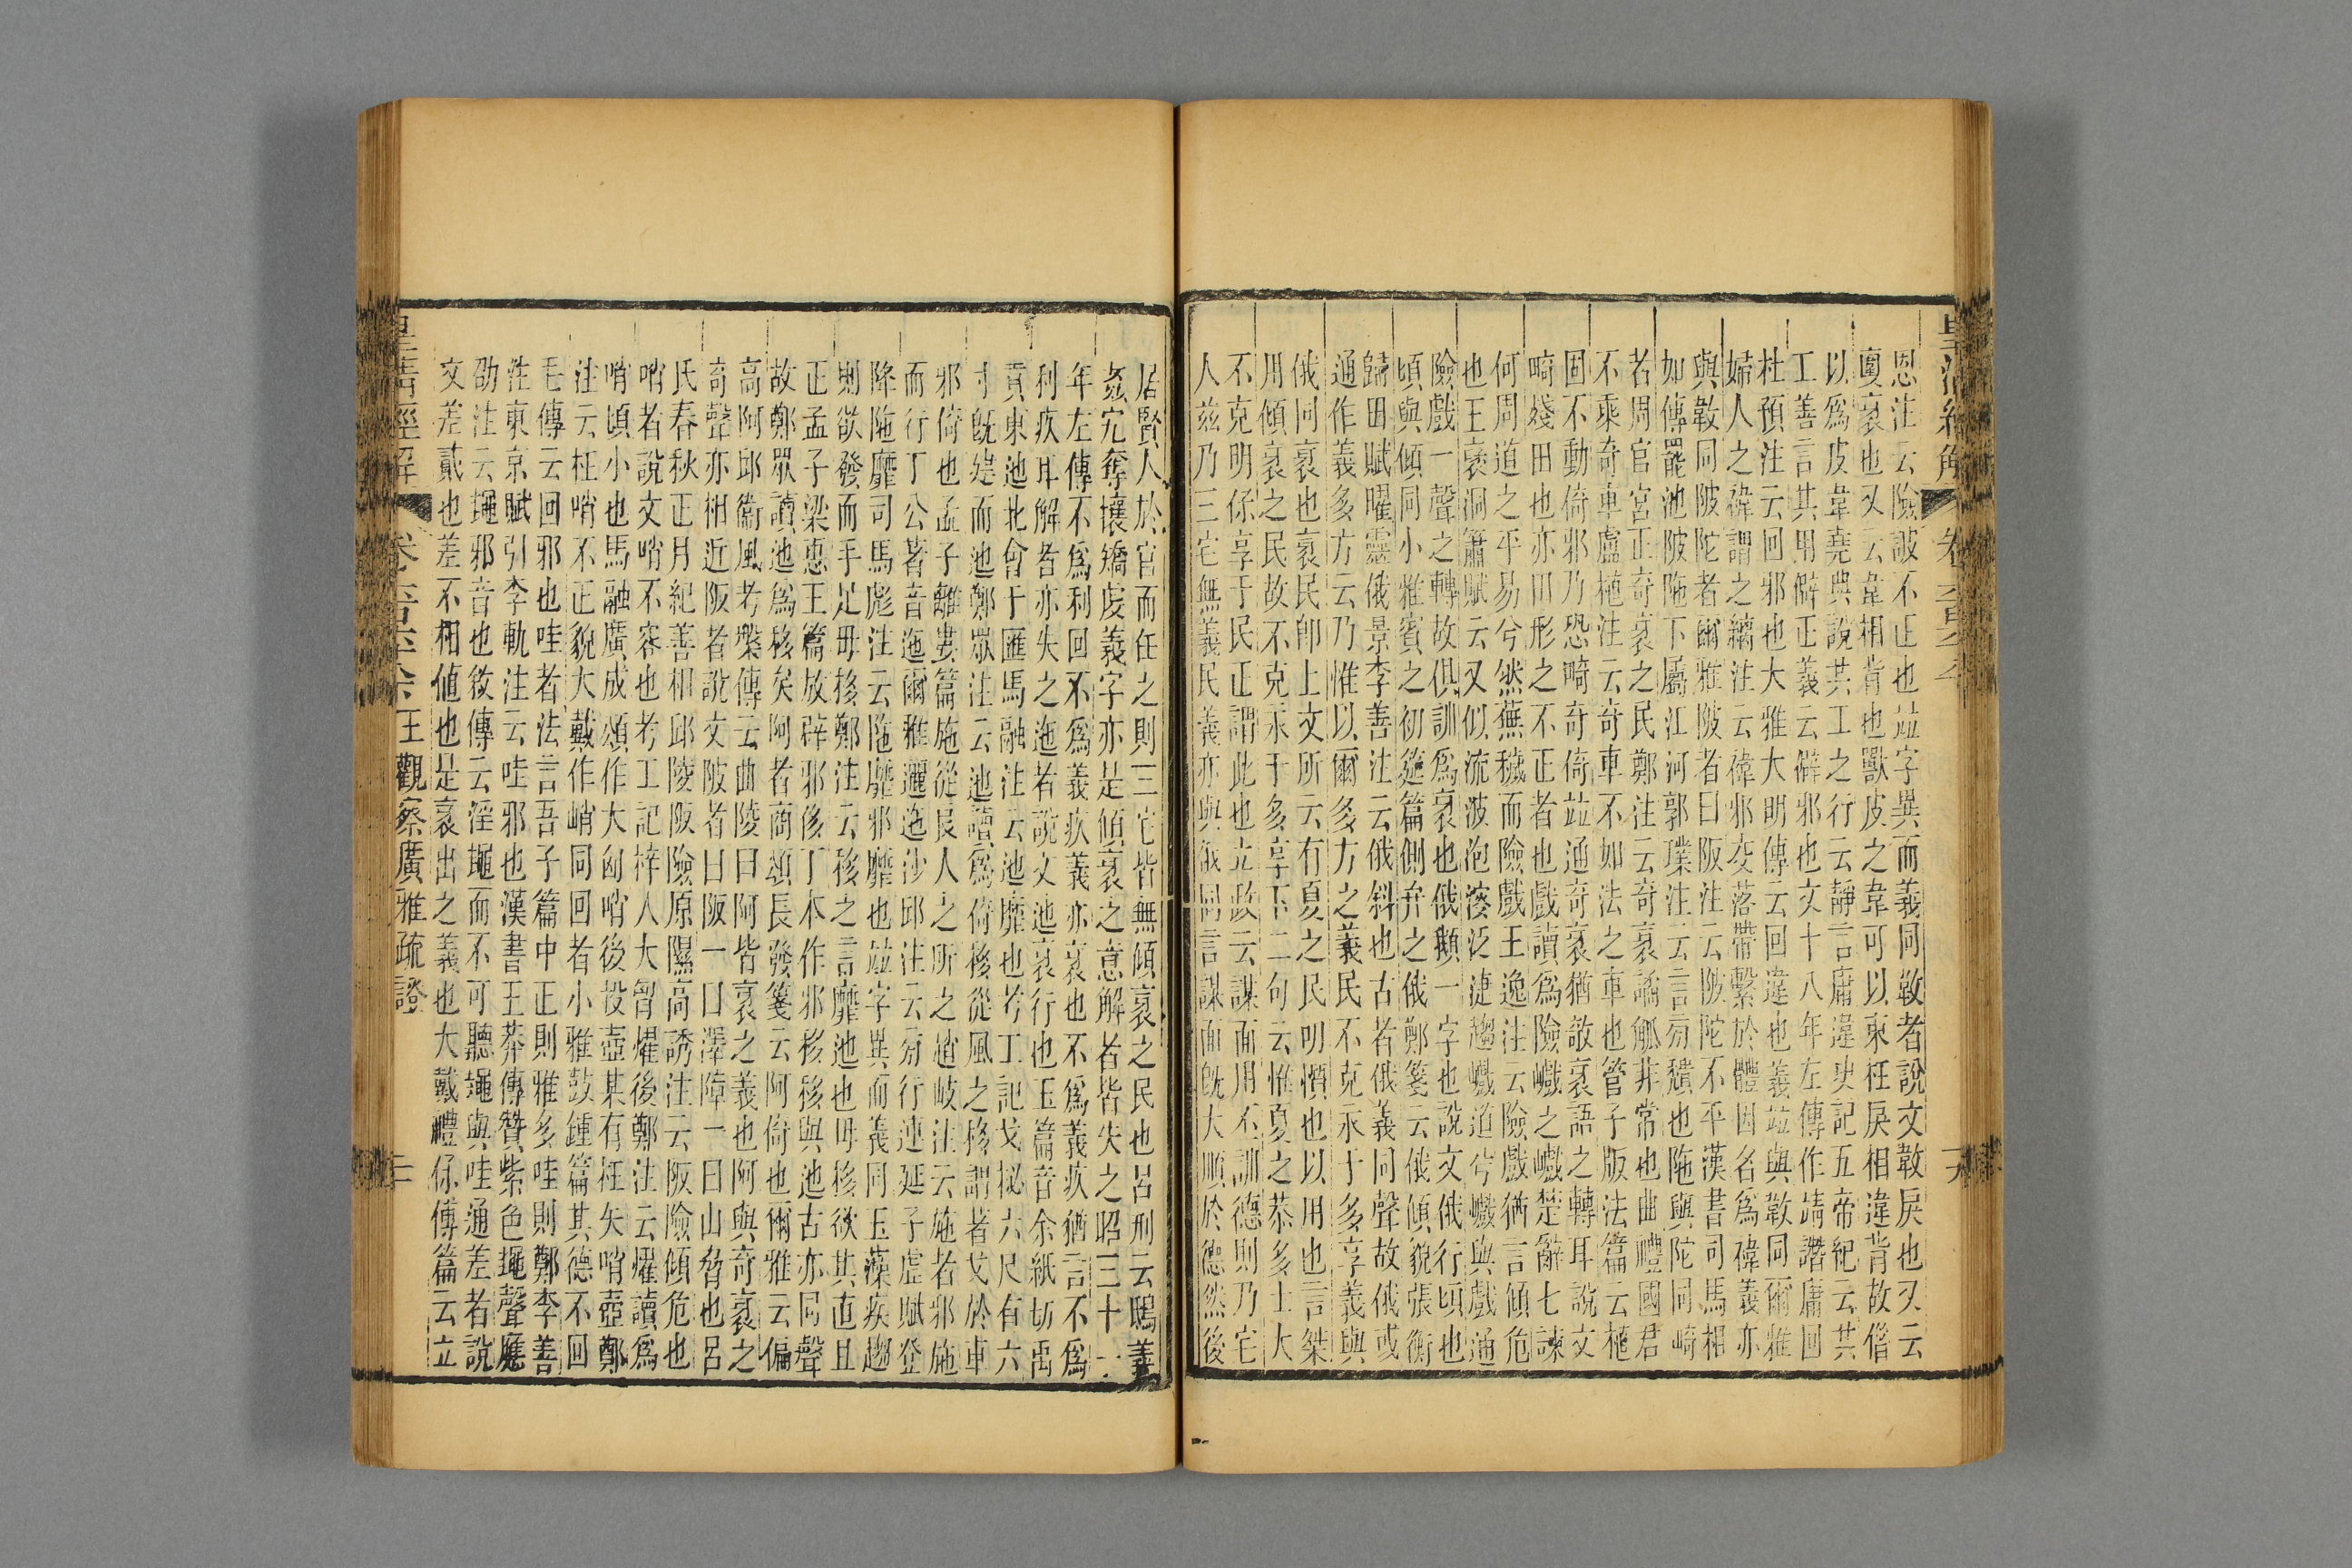 恩注云險詖不正也竝字異而義同㪏者說文㪏戾也又云
奊衺也又云韋相背也獸皮之韋可以束枉戾相違背故借
以爲皮韋堯典說共工之行云靜言庸違史記五帝紀云共
工善言其用僻正義云僻邪也文十八年左傳作靖譖庸回
杜預注云回邪也大雅大明傳云回違也義竝與㪏同爾雅
婦人之褘謂之縭注云褘邪交落帶繫於體因名爲褘義亦
與㪏同陂陀者爾雅陂者曰阪注云陂陀不平漢書司馬相
如傳罷池陂陁下屬江河郭璞注云言旁穨也陁與陀同崎
若周官宮正奇衺之民鄭注云奇衺譎觚非常也曲禮國君
不乘奇車盧植注云奇車不如法之車也管子版法篇云植
固不動倚邪乃恐畸奇倚竝通奇衺猶敧衺語之轉耳說文
畸殘田也亦田形之不正者也戲讀爲險巇之巇楚辭七諫
何周道之平易兮然蕪穢而險戲王逸注云險戲猶言傾危
也王褒洞簫賦云又似流波泡溲泛㴙趨巇道兮巇與戲通
險戲一聲之轉故俱訓爲衺也俄頫一字也說文俄行頃也
頃與傾同小雅賓之初筵篇側弁之俄鄭箋云俄傾貌張衡
歸田賦曜靈俄景李善注云俄斜也古者俄義同聲故俄或
通作義多方云乃惟以爾多方之義民不克永于多享義與
俄同衺也衺民卽上文所云有夏之民叨懫也以用也言桀
用傾衺之民故不克永于多享下二句云惟夏之恭多士大
不克明保享于民正謂此也立政云謀面用丕訓德則乃宅
人茲乃三宅無義民義亦與俄同言謀面旣大順於德然後
居賢人於官而任之則三宅皆無傾衺之民也呂刑云鴟義
姦宄奪攘矯虔義字亦是傾衺之意解者皆失之昭三十一
年左傳不爲利回不爲義疚義亦衺也不爲義疚猶言不爲
利疚耳解者亦失之迤者說文迆衺行也玉篇音余紙切禹
貢東迆北會于匯馬融注云迆靡也考工記戈柲六尺有六
寸旣建而迆鄭眾注云迆讀爲倚移從風之移謂著戈於車
邪倚也孟子離婁篇施從良人之所之趙岐注云施者邪施
而行丁公著音迤爾雅邐迤沙邱注云旁行連延子虛賦登
降陁靡司馬彪注云陁靡邪靡也竝字異而義同玉藻疾趨
則欲發而手足毋移鄭注云移之言靡迆也毋移欲其直且
正孟子梁惠王篇放辟邪侈丁本作邪移移與迆古亦同聲
故鄭眾讀迆爲移矣阿者商頌長發箋云阿倚也爾雅云偏
高阿邱衞風考槃傳云曲陵曰阿皆衺之義也阿與奇衺之
奇聲亦相近阪者說文陂者曰阪一曰澤障一曰山脅也呂
氏春秋正月紀善相邱陵阪險原隰高誘注云阪險傾危也
哨者說文哨不容也考工記梓人大胷燿後鄭注云燿讀爲
哨頃小也馬融廣成頌作大匈哨後投壺某有枉矢哨壺鄭
注云枉哨不正貌大戴作峭同回者小雅鼓鍾篇其德不回
毛傳云回邪也哇者法言吾子篇中正則雅多哇則鄭李善
注東京賦引李軌注云哇邪也漢書王莽傳贊紫色䵷聲應
劭注云䵷邪音也敘傳云淫䵷而不可聽䵷與哇通差者說
文差貳也差不相值也是衺出之義也大戴禮保傅篇云立
皇淸經解
卷六百六十
王觀察廣雅疏證